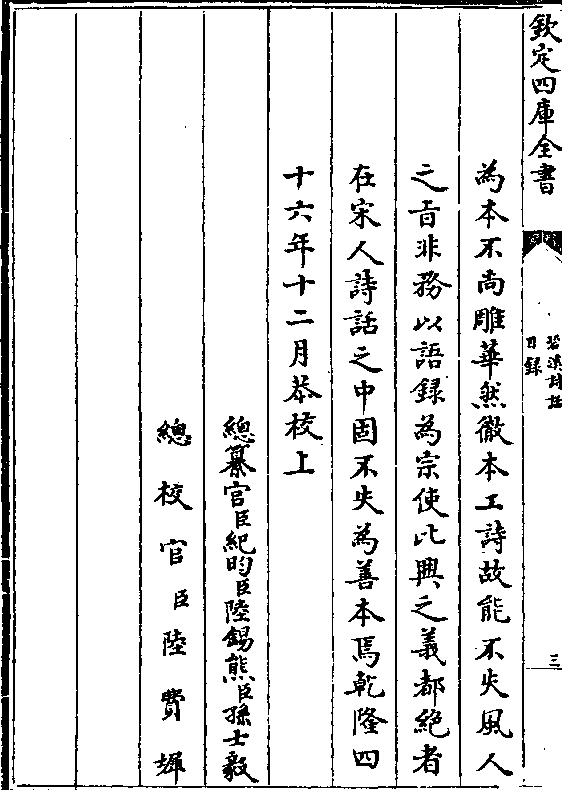 欽定四庫全書
䂬溪詩話
目錄
三
為本不尚雕華然徹本工詩故能不失風人
之旨非務以語錄為宗使比興之義都絕者
在宋人詩話之中固不失為善本焉乾隆四
十六年十二月恭校上
總纂官臣紀昀臣陸錫熊臣孫士毅
總校官臣陸費墀